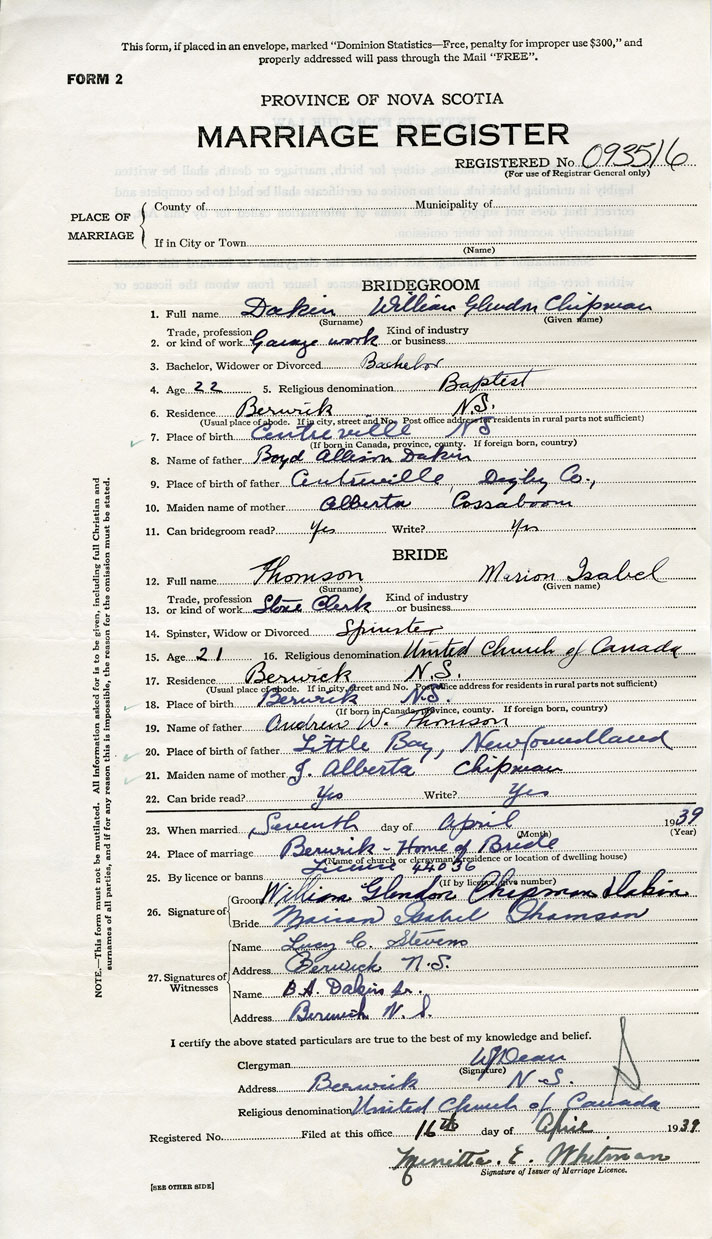 This form, if placed in an envelope, marked "Dominion Statistics—Free, penalty for improper use $300," and
properly addressed will pass through the Mail "FREE".
FORM 2
PROVINCE OF NOVA SCOTIA
MARRIAGE REGISTER
REGISTERED No. 093516
(For use of Registrar General only)
PLACE OF MARRIAGE
County of Municipality of
If in City or Town
(Name)
BRIDEGROOM
1. Full name Dakin William Glendon Chipman
(Surname) (Given name)
2. Trade, profession or kind of work Garage work Kind of industry or business
3. Bachelor, Widower or Divorced Bachelor
4. Age 22 5. Religious denomination Baptist
6. Residence Berwick N.S.
(Usual place of abode. If in city, street and No. Post office address for residents in rural parts not sufficient)
7. Place of birth Centreville N.S
(If born in Canada, province, county. If foreign born, country)
8. Name of father Boyd Allison Dakin
9. Place of birth of father Centreville, Digby Co.,
10. Maiden name of mother Alberta Cossaboom
11. Can bridegroom read? Yes Write? Yes
BRIDE
12. Full name Thomson Marion Isabel
(Surname) (Given name)
13. Trade, profession or kind of work Store Clerk Kind of industry or business
14. Spinster, Widow or Divorced Spinster
15. Age 21 16. Religious denomination United Church of Canada
17. Residence Berwick N.S.
(Usual place of abode. If in city, street and No. Post office address for residents in rural parts not sufficient)
18. Place of birth Berwick N.S.
(If born in Canada, province, county. If foreign born, country)
19. Name of father Andrew W. Thomson
20. Place of birth of father Little Bay, Newfoundland
21. Maiden name of mother J. Alberta Chipman
22. Can bride read? Yes Write? Yes
23. When married, Seventh day of April 1939
(Month) (Year)
24. Place of marriage Berwick - Home of Bride
(Name of church or clergyman's residence or location of dwelling house)
25. By licence or banns License 44036
(If by licence, give number)
26. Signature of
Groom William Glendon Chipman Dakin
Bride Marion Isabel Thomson
27. Signatures of Witnesses
Name Lucy C. Stevens
Address Berwick N.S.
Name B.A. Dakin Jr.
Address Berwick N.S.
I certify the above stated particulars are true to the best of my knowledge and belief.
Clergyman Dean
(Signature)
Address Berwick N.S.
Religious denomination United Church of Canada
Registered No. Filed at this office 16th day of April 1939
E. Whitman
Signature of Issuer of Marriage Licence.
[SEE OTHER SIDE]
NOTE.—This form must not be mutilated. All information asked for is to be given, including full Christian and
surnames of all parties, and if for any reason this is impossible, the reason for the omission must be stated.